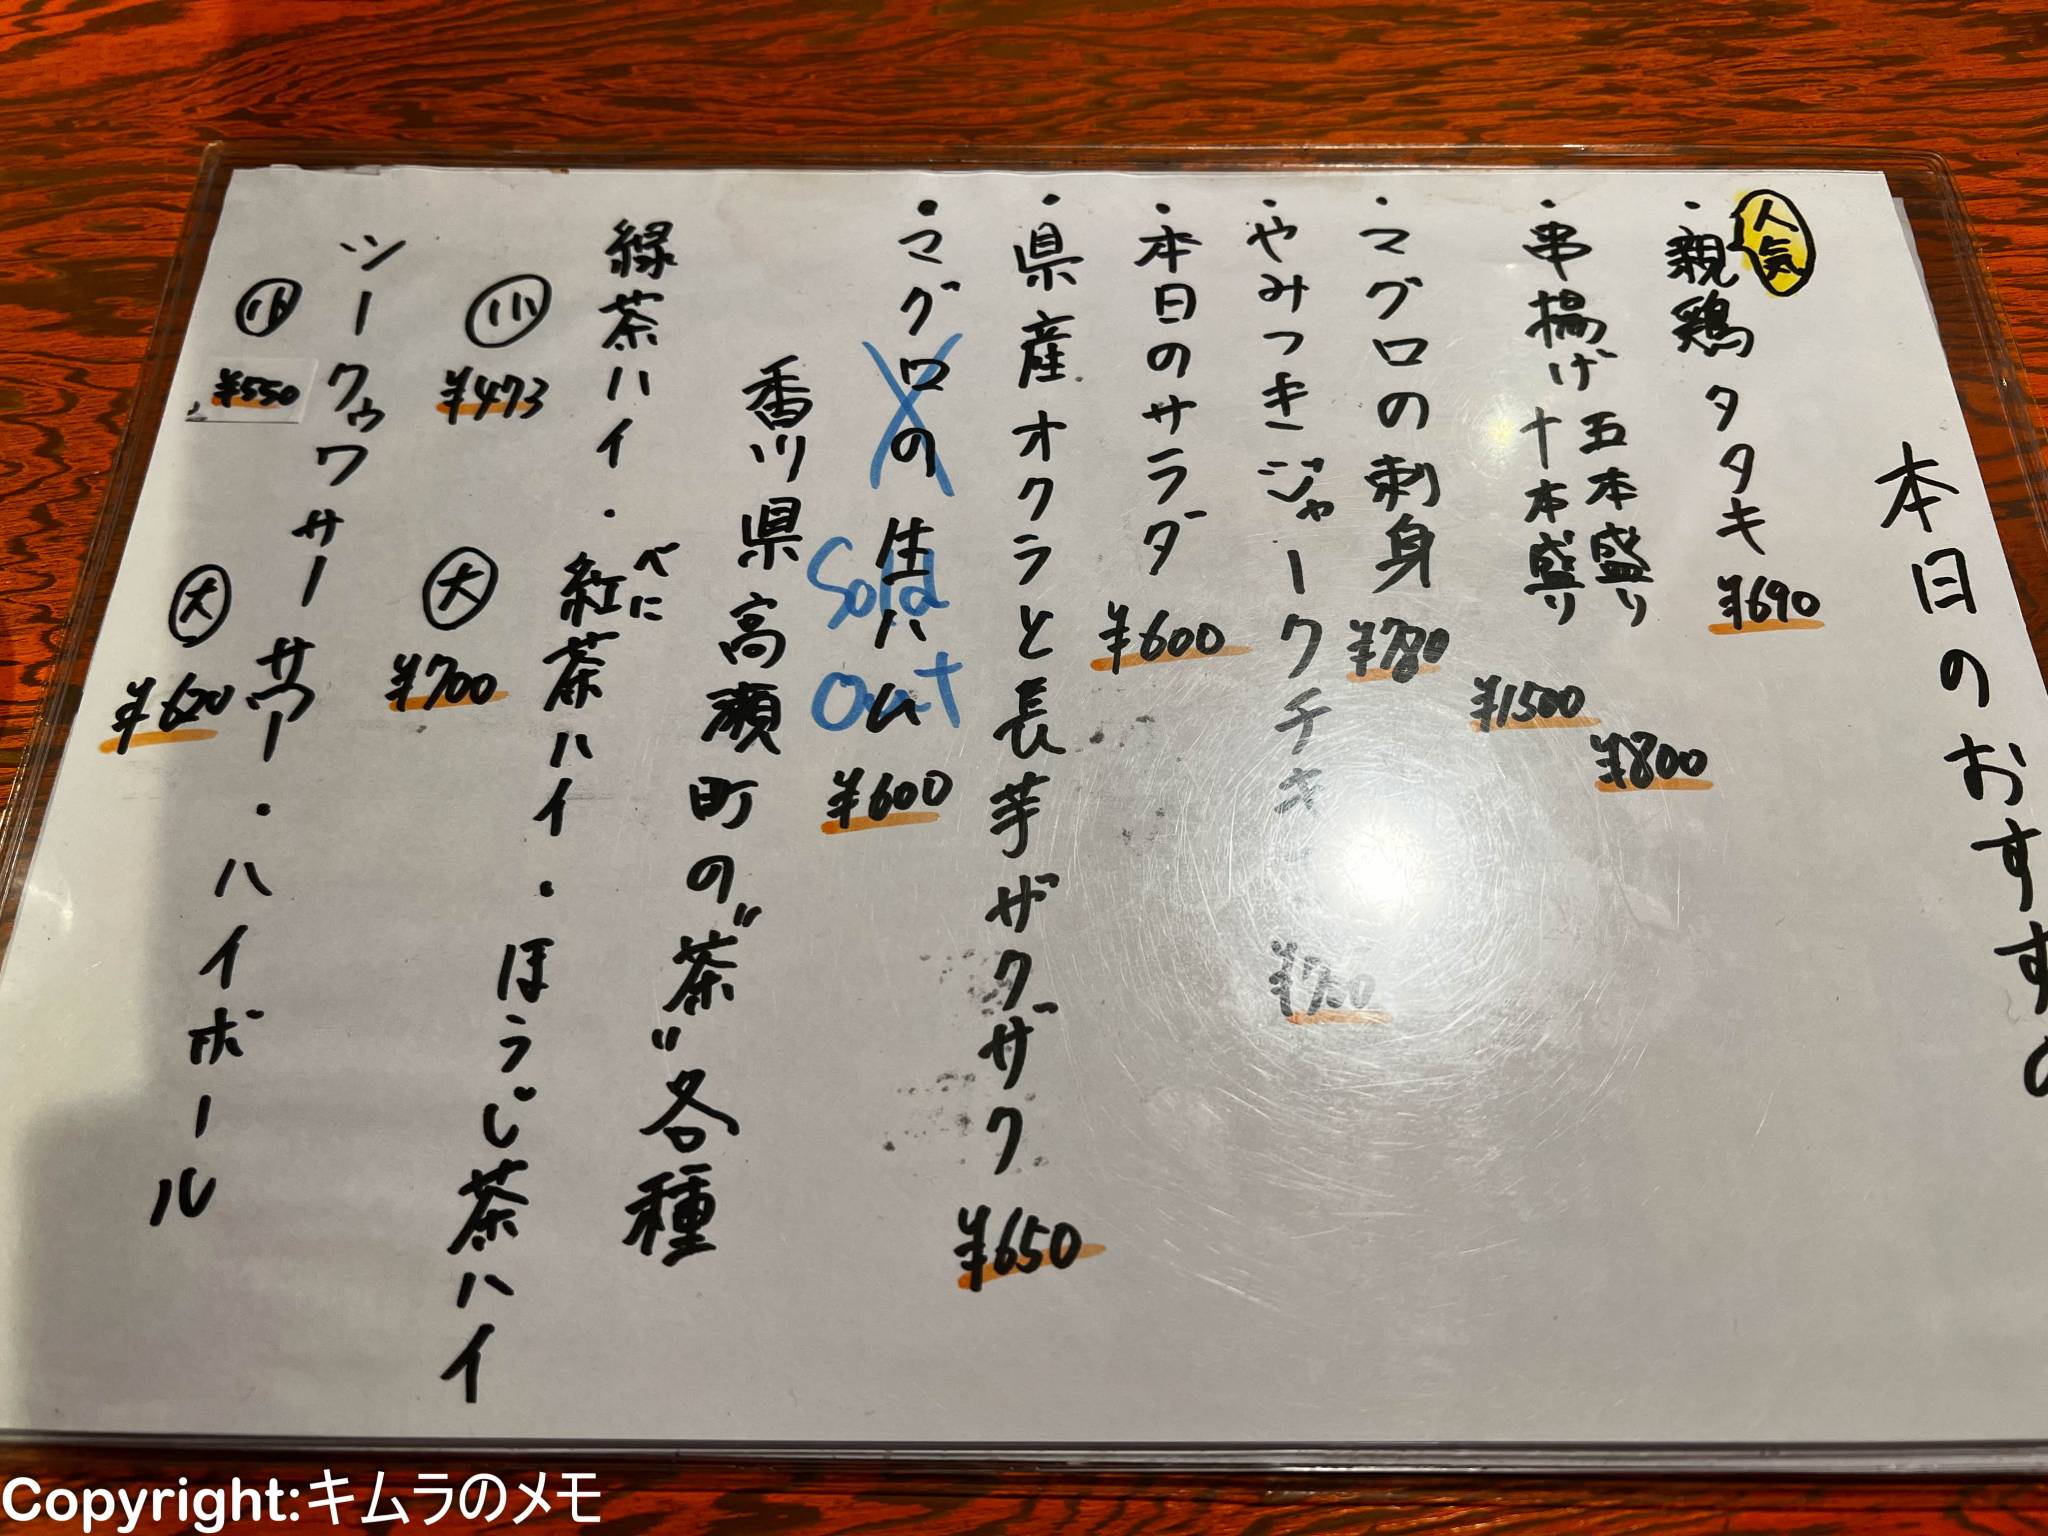 本日のおすすめ
人気
・親鶏タタキ ¥690
・串揚げ 五本盛り ¥800
十本盛り ¥1500
・マグロの刺身 ¥780
・やみつきジャークチキン
・本日のサラダ ¥600
・県産オクラと長芋ザクザク ¥650
・マグロの生ハム ¥600
Sold Out
香川県高瀬町の"茶"各種
緑茶ハイ・紅茶ハイ・ほうじ茶ハイ
べに
小 ¥473 大 ¥700
シークゥワーサーサワー・ハイボール
小 ¥550 大 ¥620
Copyright:キムラのメモ